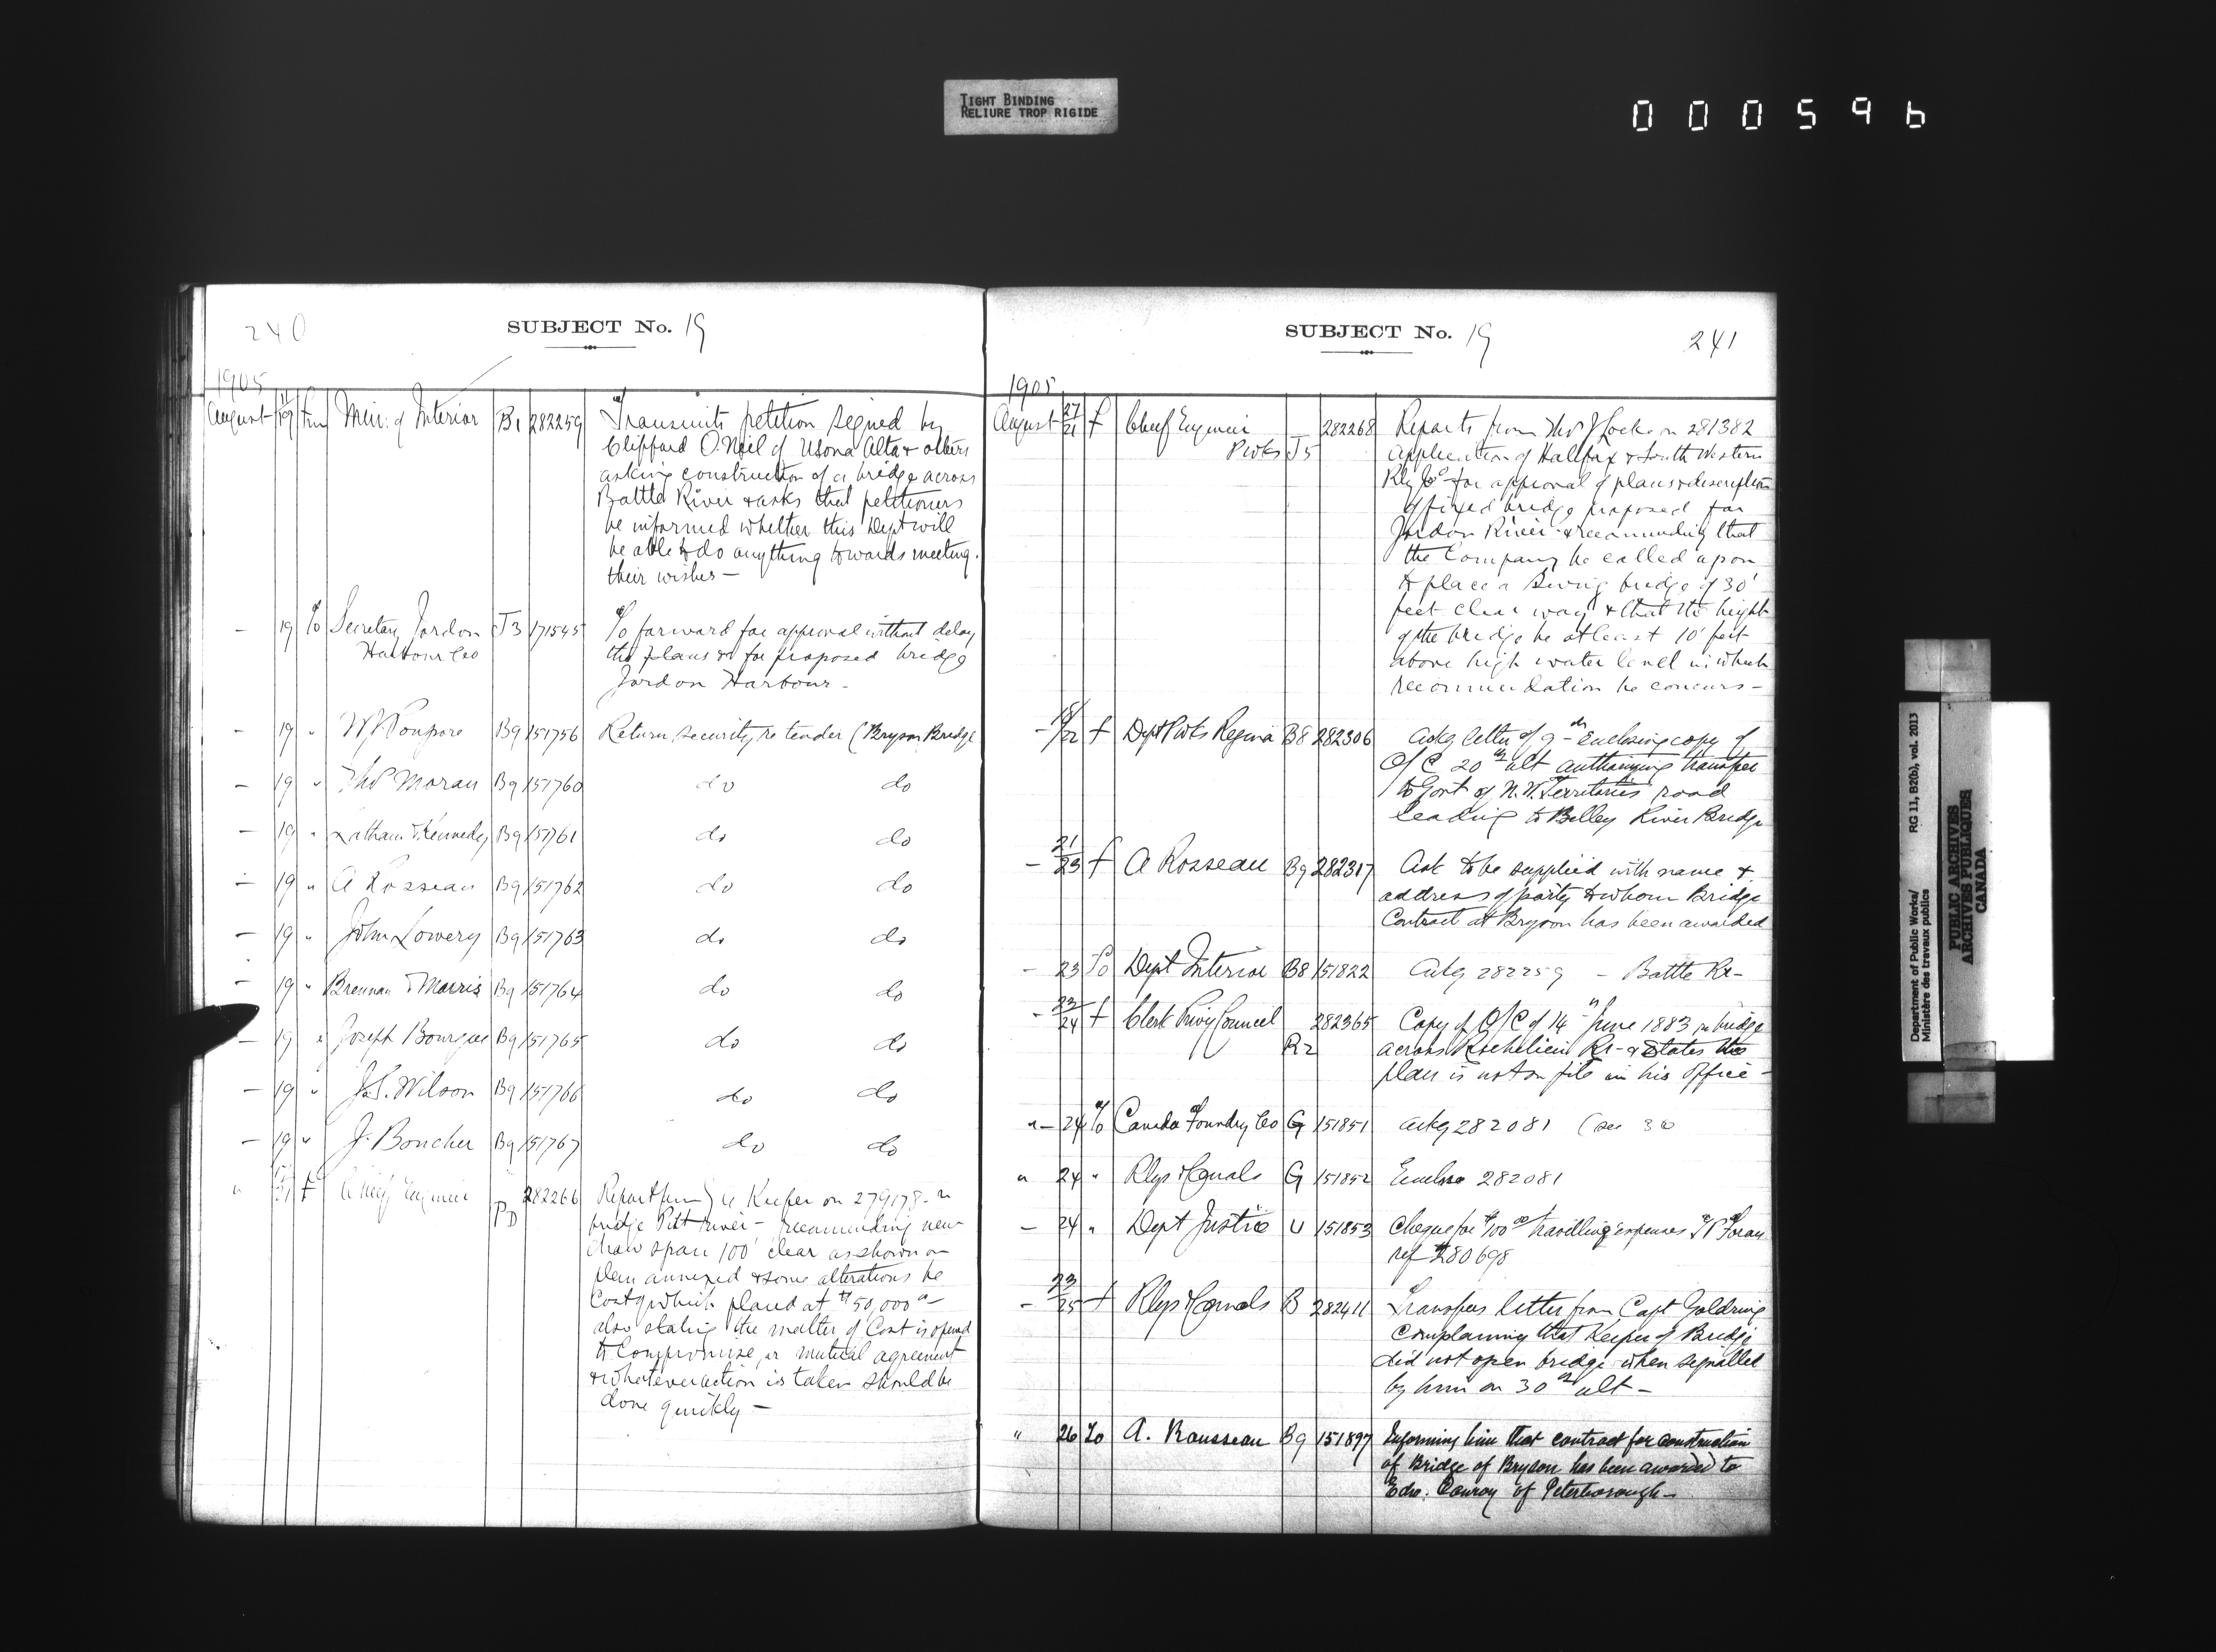 TIGHT BINDING
RELIURE TROP RIGIDE
000596
240
SUBJECT No. 19
1905
August 17/19 fm Min. of Interior B1 282259 Transmits petition signed by
Clifford O.Neil of Usona Alta & others
asking construction of a bridge across
Battle River & asks that petitioners
be informed whether this Dept will
be able to do anything towards meeting
their wishes —
— 19 To Secretary Jordon J3 171545 To forward for approval without delay
Harbour Co the plans &c for proposed bridge
Jordon Harbour -
— 19 " W J Poupore B9 151756 Return security re tender (Bryson Bridge
— 19 " Thos Moran B9 151760 do do
— 19 " Latham & Kennedy B9 151761 do do
— 19 " A Rosseau B9 151762 do do
— 19 " John Lowery B9 151763 do do
— 19 " Brennan & Morris B9 151764 do do
— 19 " Joseph Bourque B9 151765 do do
— 19 " J.S. Wilson B9 151766 do do
— 19 " J. Boucher B9 151767 do do
" 21 f Chief Engineer 282266 Report from Keefer on 279178 - re
PD bridge Pitt river - recommending new
draw span 100' clear as shown on
plan annexed & some alterations he
Cost of which placed at $50,000 —
also stating the matter of Cost is opened
to Compromise or mutual agreement
& whatever action is taken should be
done quickly —
SUBJECT No. 19
241
1905
August 17/21 f Chief Engineer 282268 Reports from Thos J Locke on 281382
Pwks J5 application of Halifax & South Western
Rly Co for approval of plans & description
of fixed bridge proposed for
Jordon River & recommending that
the Company be called upon
to place a Swing bridge of 30'
feet clear way & that the height
of the bridge be at least 10' feet
above high water level in which
recommendation he concurs —
— 18/22 f Dept Pwks Regina B8 282306 Ackg letter of 9 - Enclosing copy of
O/C 20th ult authorizing transfer
to Govt of N.W. Territories road
leading to Belley River Bridge
— 21/23 f A Rosseau B9 282317 Ask to be supplied with name &
address of party to whom Bridge
Contract at Bryson has been awarded
— 23 To Dept Interior B8 151822 Ackg 282259 - Battle Rr -
— 23/24 f Clerk Privy Council 282365 Copy of O/C of 14th June 1883 re bridge
R2 across Richelieu Rr - & states the
plan is not on file in his office —
" — 24 To Canada Foundry Co G 151851 Ackg 282081 (see 30
" 24 " Rlys & Canals G 151852 Enclose 282081
— 24 " Dept Justice U 151853 Cheque for $100 00 travelling expenses T P Foran
ref 280698
— 23/25 f Rlys & Canals B 282411 Transfers letter from Capt Goldring
Complaining that Keeper of Bridge
did not open bridge when signalled
by him on 30th ult —
" 26 To A. Rousseau B9 151897 Informing him that contract for construction
of Bridge of Bryson has been awarded to
Edw. Conroy of Peterborough —
Department of Public Works/ RG 11, B2(b), vol. 2013
Ministère des travaux publics
PUBLIC ARCHIVES
ARCHIVES PUBLIQUES
CANADA